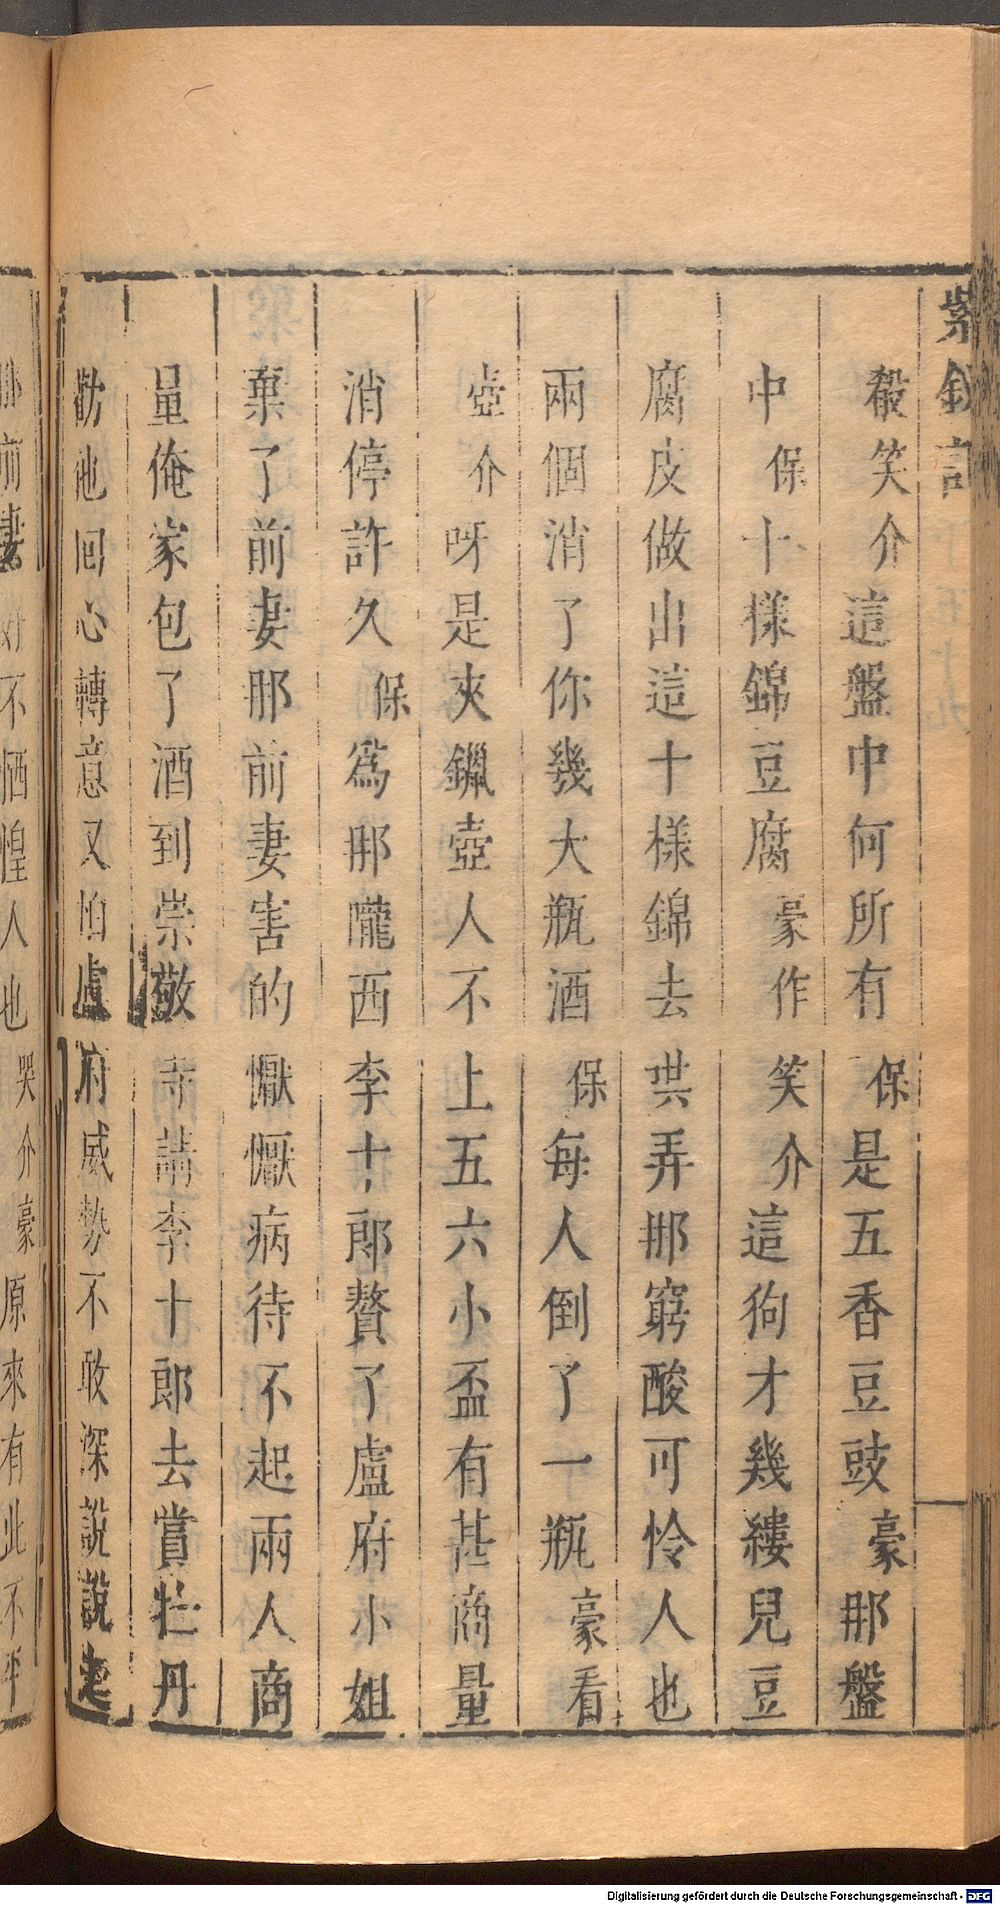 紫釵記
殽笑介這盤中何所有保是五香豆豉豪那盤
中保十樣錦豆腐豪作笑介這狗才幾縷兒豆
腐皮做出這十樣錦去哄弄那窮酸可憐人也
兩個消了你幾大瓶酒保每人倒了一瓶豪看
壺介呀是夾鑞壺人不上五六小盃有甚商量
消停許久保爲那隴西李十郎贅了盧府小姐
棄了前妻那前妻害的懨懨病待不起兩人商
量俺家包了酒到崇敬寺請李十郎去賞牡丹
勸他回心轉意又怕盧府威勢不敢深說說
那前妻好不恓惶人也哭介豪原來有此不平
Digitalisierung gefördert durch die Deutsche Forschungsgemeinschaft - DFG